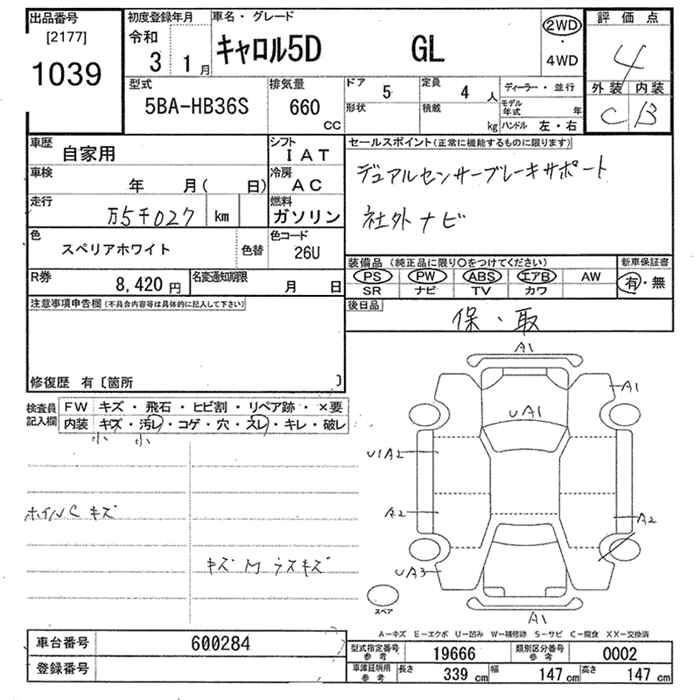 出品番号
[2177]
1039
初度登録年月
令和
3 1月
車名・グレード
キャロル5D GL
2WD
・
4WD
評価点
4
外装 内装
C B
型式
5BA-HB36S
排気量
660 CC
ドア
5
形状
定員
4 人
積載
kg
ディーラー・並行
モデル年式 年
ハンドル 左・右
車歴
自家用
シフト
IAT
車検
年 月( 日)
冷房
AC
走行
万5千027 km
燃料
ガソリン
色
スペリアホワイト
色替
色コード
26U
R券
8,420 円
名変通知期限
月 日
セールスポイント(正常に機能するものに限ります)
デュアルセンサーブレーキサポート
社外ナビ
装備品(純正品に限り○をつけてください)
PS PW ABS エアB AW
SR ナビ TV カワ
新車保証書
有・無
後日品
保・取
注意事項申告欄(不具合内容等は具体的に記入して下さい)
修復歴 有〔箇所 〕
検査員記入欄
FW キズ・飛石・ヒビ割・リペア跡・×要
内装 キズ・汚レ・コゲ・穴・スレ・キレ・破レ
小 小
ホイルC キズ
キズM ラスキズ
A1
A1
UA1
U1A2
A2
A2
UA3
A1
スペア
A−キズ E−エクボ U−凹み W−補修跡 S−サビ C−腐食 XX−交換済
車台番号
600284
登録番号
型式指定番号
参考
19666
類別区分番号
参考
0002
車庫証明用
参考
長さ 339 cm 幅 147 cm 高さ 147 cm